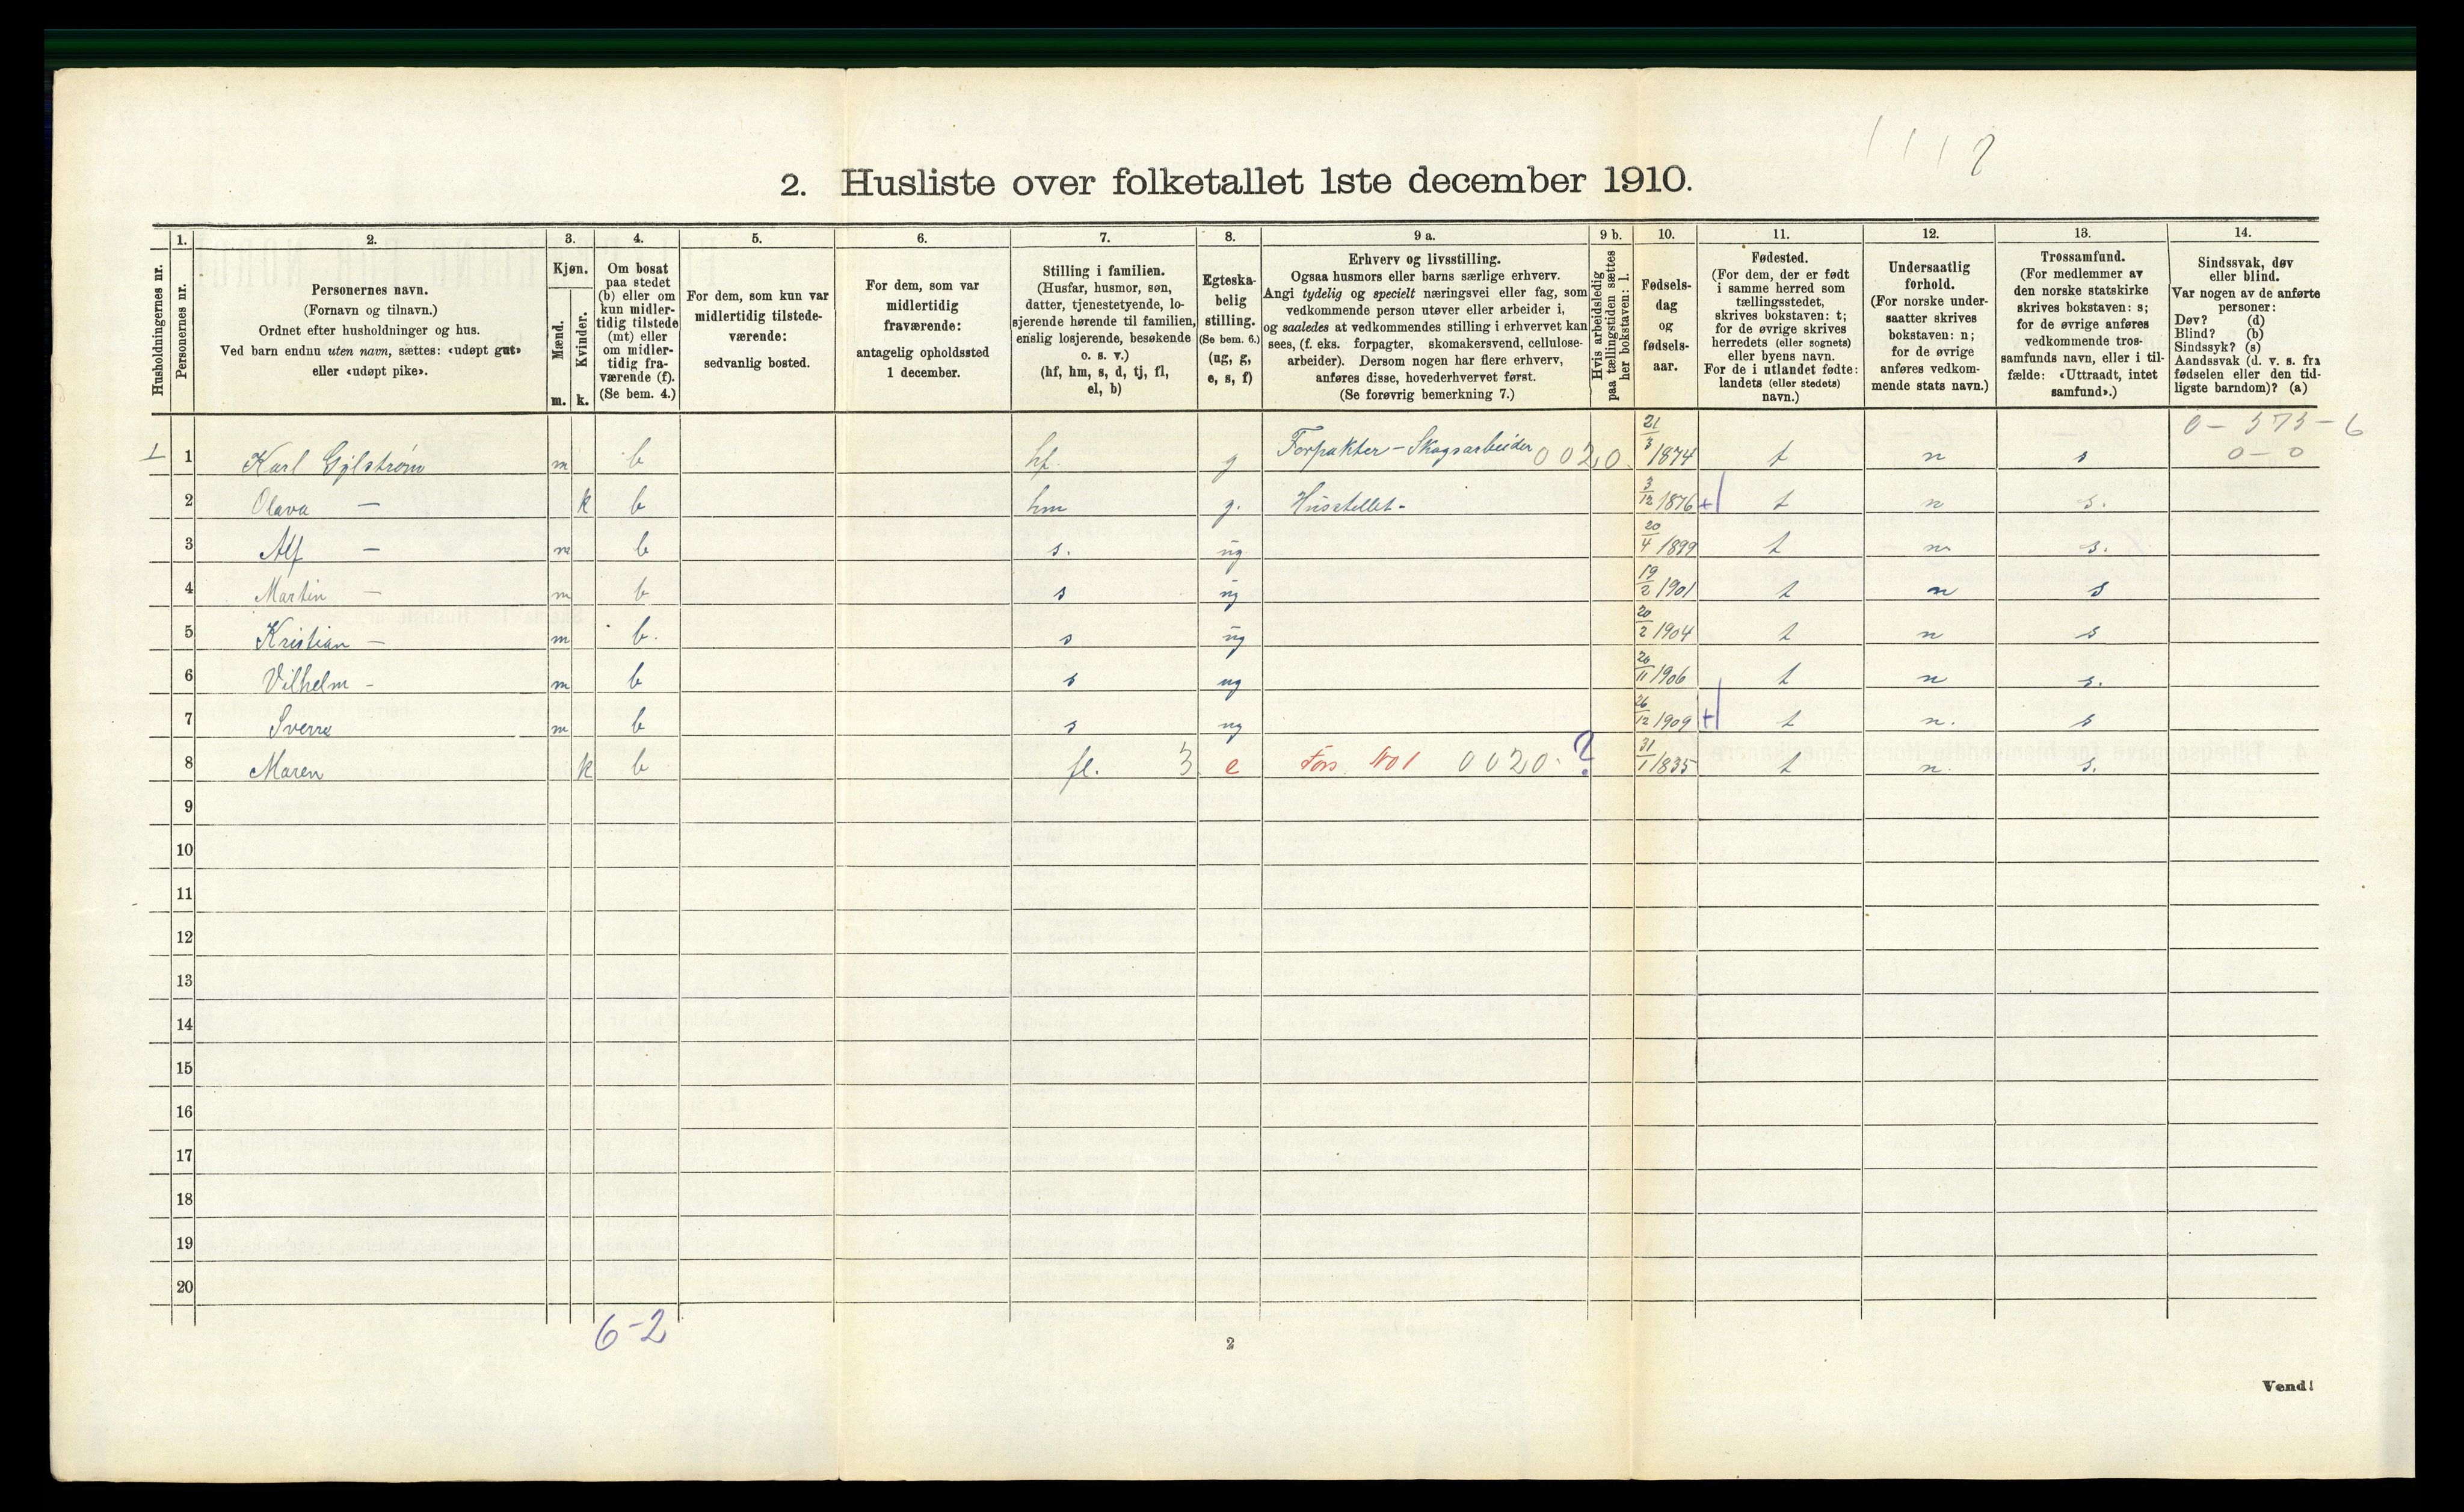 1 1 1 2
2. Husliste over folketallet 1ste december 1910.
Husholdningernes nr.
1.
Personernes nr.
2.
Personernes navn.
(Fornavn og tilnavn.)
Ordnet efter husholdninger og hus.
Ved barn endnu uten navn, sættes: «udøpt gut»
eller «udøpt pike».
3.
Kjøn.
Mænd.
Kvinder.
m.
k.
4.
Om bosat
paa stedet
(b) eller om
kun midler-
tidig tilstede
(mt) eller
om midler-
tidig fra-
værende (f).
(Se bem. 4.)
5.
For dem, som kun var
midlertidig tilstede-
værende:
sedvanlig bosted.
6.
For dem, som var
midlertidig
fraværende:
antagelig opholdssted
1 december.
7.
Stilling i familien.
(Husfar, husmor, søn,
datter, tjenestetyende, lo-
sjerende hørende til familien,
enslig losjerende, besøkende
o. s. v.)
(hf, hm, s, d, tj, fl,
el, b)
8.
Egteska-
belig
stilling.
(Se bem. 6.)
(ug, g,
e, s, f)
9 a.
Erhverv og livsstilling.
Ogsaa husmors eller barns særlige erhverv.
Angi tydelig og specielt næringsvei eller fag, som
vedkommende person utøver eller arbeider i,
og saaledes at vedkommendes stilling i erhvervet kan
sees, (f. eks. forpagter, skomakersvend, cellulose-
arbeider). Dersom nogen har flere erhverv,
anføres disse, hovederhvervet først.
(Se forøvrig bemerkning 7.)
9 b.
Hvis arbeidsledig
paa tællingstiden sættes
her bokstaven: l.
10.
Fødsels-
dag
og
fødsels-
aar.
11.
Fødested.
(For dem, der er født
i samme herred som
tællingsstedet,
skrives bokstaven: t;
for de øvrige skrives
herredets (eller sognets)
eller byens navn.
For de i utlandet fødte:
landets (eller stedets)
navn.)
12.
Undersaatlig
forhold.
(For norske under-
saatter skrives
bokstaven: n;
for de øvrige
anføres vedkom-
mende stats navn.)
13.
Trossamfund.
(For medlemmer av
den norske statskirke
skrives bokstaven: s;
for de øvrige anføres
vedkommende tros-
samfunds navn, eller i til-
fælde: «Uttraadt, intet
samfund».)
14.
Sindssvak, døv
eller blind.
Var nogen av de anførte
personer:
Døv? (d)
Blind? (b)
Sindssyk? (s)
Aandssvak (d. v. s. fra
fødselen eller den tid-
ligste barndom)? (a)
0 - 575 - 6
1 1 Karl Gylstrøm m b hf. g Forpakter - Skogsarbeider 0020. 21/3 1874 t n s 0 - 0
2 Olava — k b hm g. Husstellet - 3/12 1876 + t n s.
3 Alf — m b s. ug 20/4 1899 t n s.
4 Martin — m b s ug 19/2 1901 t n s
5 Kristian — m b. s ug 20/2 1904 t n s
6 Vilhelm - m b s ug 20/11 1906 t n s.
7 Sverre m b s ug 26/12 1909 + t n. s
8 Maren k b fl. 3 e Fors No 1 0020. ? 31/1 1835 t n. s.
9
10
11
12
13
14
15
16
17
18
19
20
6-2
2
Vend!